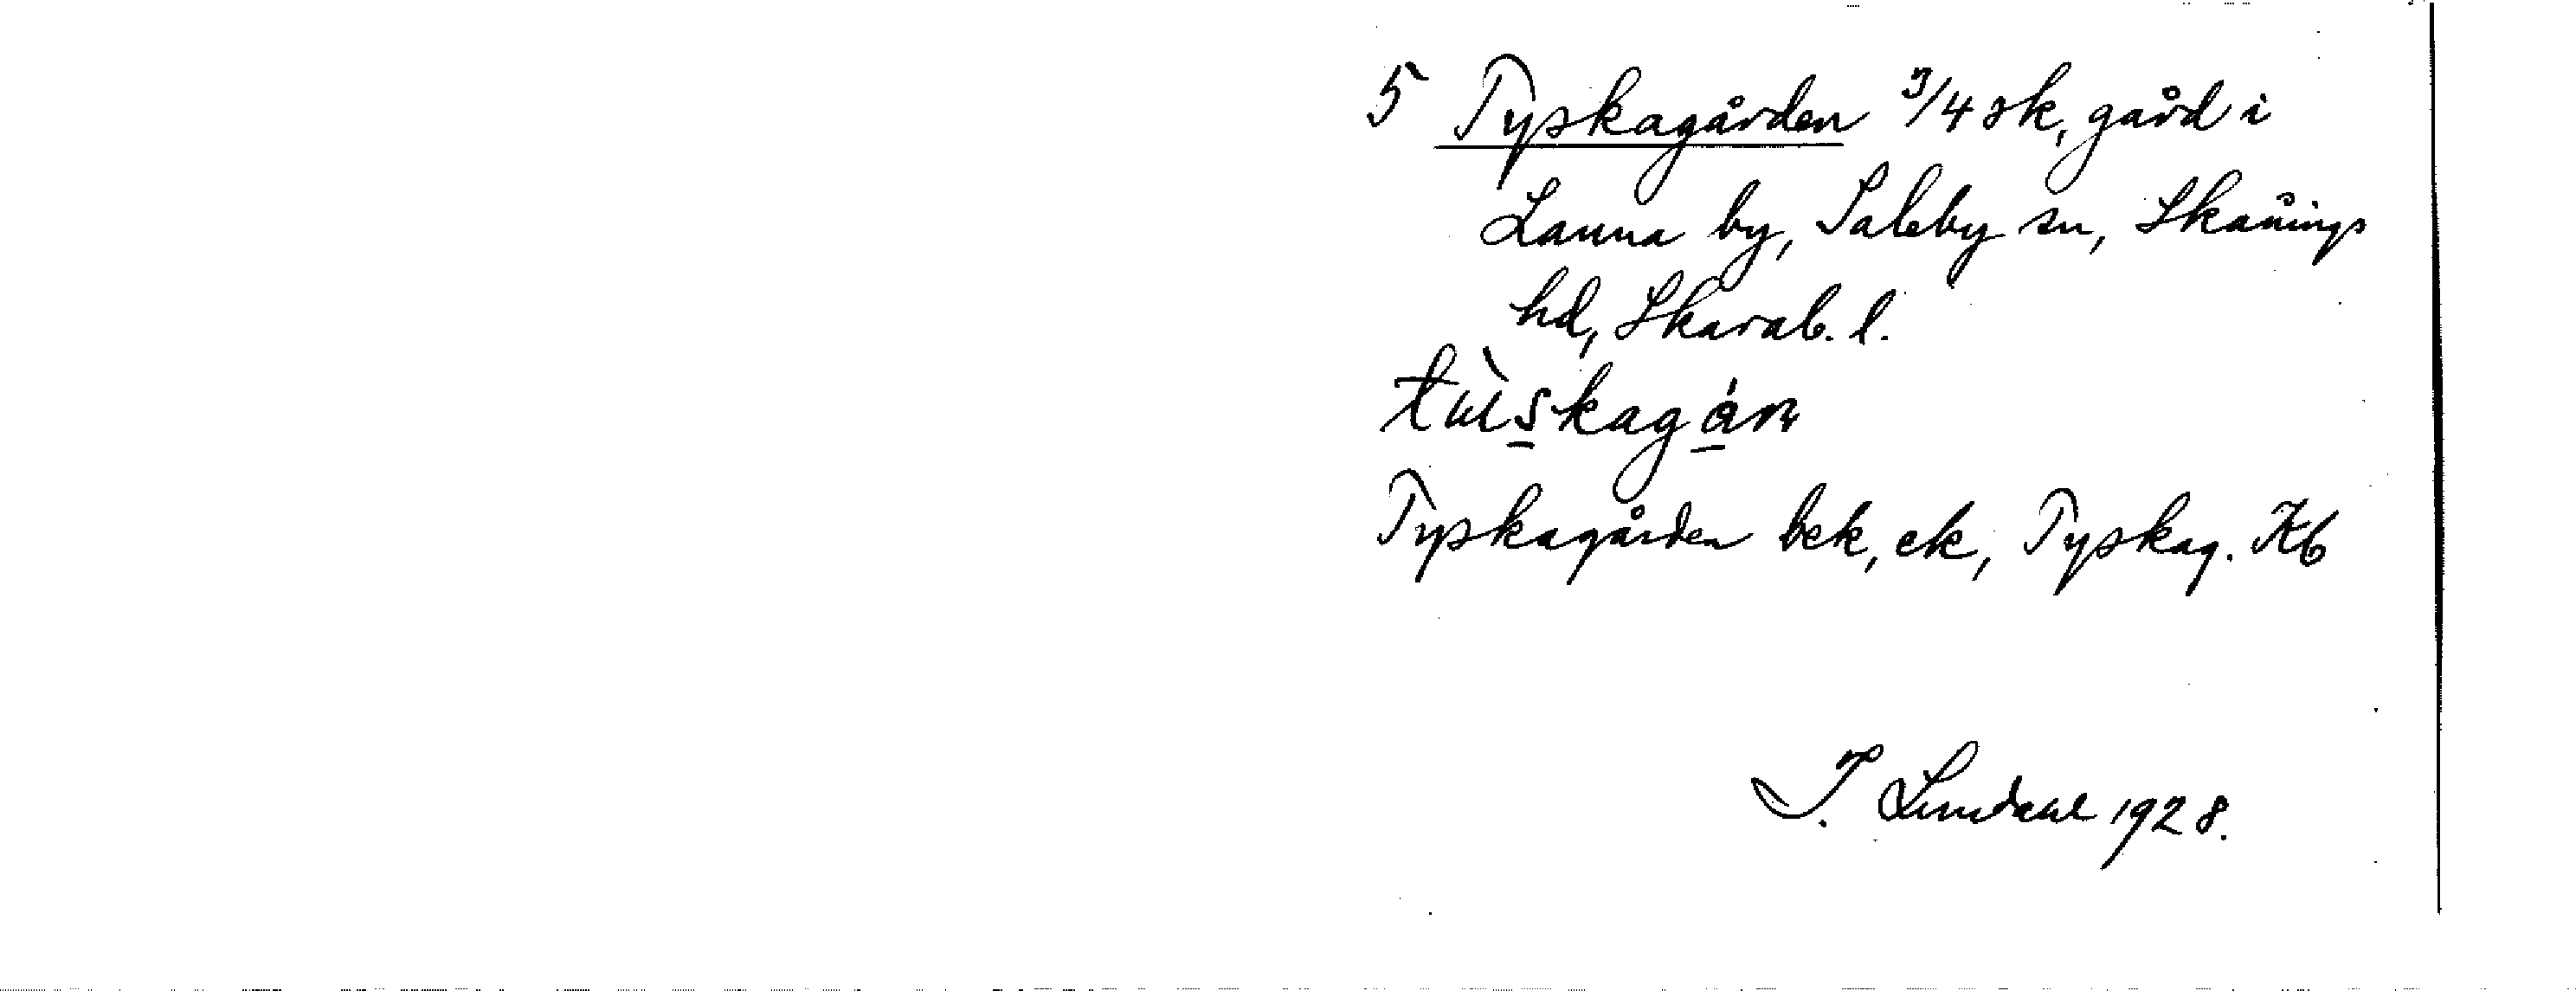 5 Tyskagården 3/4 sk, gård i
Lanna by, Saleby sn, Skånings
hd, Skarab. l.
Tyskagården bek, ek, Tyskag. Kb
T. Lindahl 1928.